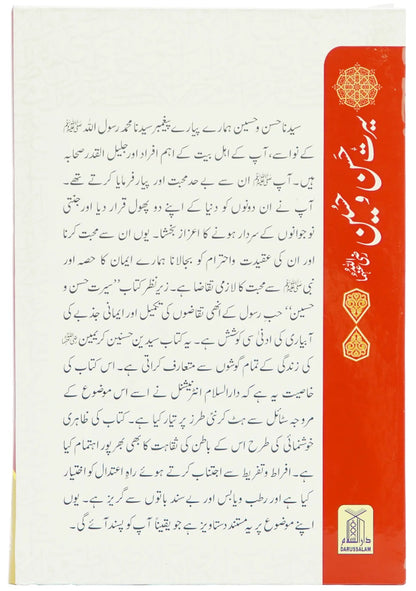 سیرت حسن و حسین رضی اللہ عنہما
سیدنا حسن و حسین ہمارے پیارے پیغمبر سیدنا محمد رسول اللہ ﷺ
کے نواسے، آپ کے اہل بیت کے اہم افراد اور جلیل القدر صحابہ
ہیں۔ آپ ﷺ ان سے بے حد محبت اور پیار فرمایا کرتے تھے۔
آپ نے ان دونوں کو دنیا کے اپنے دو پھول قرار دیا اور جنتی
نوجوانوں کے سردار ہونے کا اعزاز بخشا۔ یوں ان سے محبت کرنا
اور ان کی عقیدت واحترام کو بجالانا ہمارے ایمان کا حصہ اور
نبی ﷺ سے محبت کا لازمی تقاضا ہے۔ زیر نظر کتاب ”سیرت حسن و
حسین“ حب رسول کے انھی تقاضوں کی تکمیل اور ایمانی جذبے کی
آبیاری کی ادنیٰ سی کوشش ہے۔ یہ کتاب سیدین حسنین کریمین رضی اللہ عنہما
کی زندگی کے تمام گوشوں سے متعارف کراتی ہے۔ اس کتاب کی
خاصیت یہ ہے کہ دارالسلام انٹرنیشنل نے اسے اس موضوع کے
مروجہ سٹائل سے ہٹ کر نئی طرز پر تیار کیا ہے۔ کتاب کی ظاہری
خوشنمائی کی طرح اس کے باطن کی ثقاہت کا بھی بھرپور اہتمام کیا
ہے۔ افراط و تفریط سے اجتناب کرتے ہوئے راہِ اعتدال کو اختیار
کیا ہے اور رطب ویابس اور بے سند باتوں سے گریز ہے۔ یوں
اپنے موضوع پر یہ مستند دستاویز ہے جو یقیناً آپ کو پسند آئے گی۔
دارالسلام
DARUSSALAM